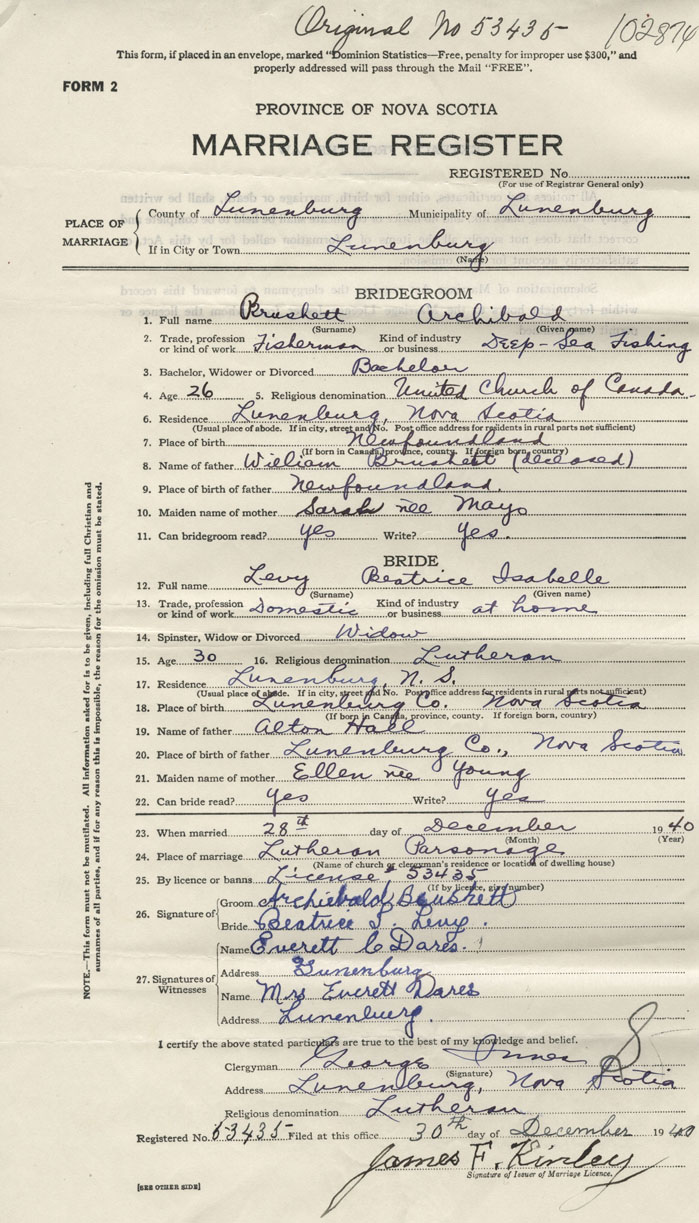 Original No 53435 102874
This form, if placed in an envelope, marked "Dominion Statistics—Free, penalty for improper use $300," and
properly addressed will pass through the Mail "FREE".
FORM 2
PROVINCE OF NOVA SCOTIA
MARRIAGE REGISTER
REGISTERED No.
(For use of Registrar General only)
PLACE OF MARRIAGE
County of Lunenburg Municipality of Lunenburg
If in City or Town Lunenburg
(Name)
BRIDEGROOM
1. Full name Brushett Archibald
(Surname) (Given name)
2. Trade, profession or kind of work Fisherman Kind of industry or business Deep-Sea Fishing
3. Bachelor, Widower or Divorced Bachelor
4. Age 26 5. Religious denomination United Church of Canada.
6. Residence Lunenburg, Nova Scotia
(Usual place of abode. If in city, street and No. Post office address for residents in rural parts not sufficient)
7. Place of birth Newfoundland
(If born in Canada, province, county. If foreign born, country)
8. Name of father William Brushett (deceased)
9. Place of birth of father Newfoundland.
10. Maiden name of mother Sarah née Mayo
11. Can bridegroom read? yes Write? yes.
BRIDE
12. Full name Levy Beatrice Isabelle
(Surname) (Given name)
13. Trade, profession or kind of work Domestic Kind of industry or business at home
14. Spinster, Widow or Divorced Widow
15. Age 30 16. Religious denomination Lutheran
17. Residence Lunenburg, N. S.
(Usual place of abode. If in city, street and No. Post office address for residents in rural parts not sufficient)
18. Place of birth Lunenburg Co. Nova Scotia
(If born in Canada, province, county. If foreign born, country)
19. Name of father Alton Hall
20. Place of birth of father Lunenburg Co., Nova Scotia
21. Maiden name of mother Ellen née Young
22. Can bride read? yes Write? yes
23. When married 28th day of December 1940
(Month) (Year)
24. Place of marriage Lutheran Parsonage
(Name of church or clergyman's residence or location of dwelling house)
25. By licence or banns License # 53435
(If by licence, give number)
26. Signature of
Groom Archiebald Brushett
Bride Beatrice I. Levy.
27. Signatures of Witnesses
Name Everett C Dares.
Address Lunenburg
Name Mrs Everett Dares
Address Lunenburg.
I certify the above stated particulars are true to the best of my knowledge and belief.
Clergyman George Innes
(Signature)
Address Lunenburg, Nova Scotia
Religious denomination Lutheran
Registered No. 53435 Filed at this office 30th day of December 1940
James F. Kinley
Signature of Issuer of Marriage Licence.
[SEE OTHER SIDE]
NOTE.—This form must not be mutilated. All information asked for is to be given, including full Christian and
surnames of all parties, and if for any reason this is impossible, the reason for the omission must be stated.